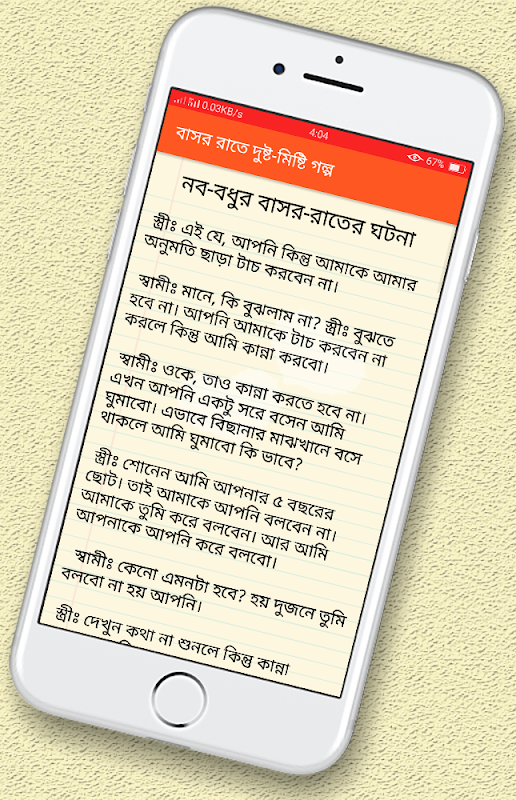 0.03KB/s 4:04 67%
বাসর রাতে দুষ্ট-মিষ্টি গল্প
নব-বধুর বাসর-রাতের ঘটনা
স্ত্রীঃ এই যে, আপনি কিন্তু আমাকে আমার
অনুমতি ছাড়া টাচ করবেন না।
স্বামীঃ মানে, কি বুঝলাম না? স্ত্রীঃ বুঝতে
হবে না। আপনি আমাকে টাচ করবেন না
করলে কিন্তু আমি কান্না করবো।
স্বামীঃ ওকে, তাও কান্না করতে হবে না।
এখন আপনি একটু সরে বসেন আমি
ঘুমাবো। এভাবে বিছানার মাঝখানে বসে
থাকলে আমি ঘুমাবো কি ভাবে?
স্ত্রীঃ শোনেন আমি আপনার ৫ বছরের
ছোট। তাই আমাকে আপনি বলবেন না।
আমাকে তুমি করে বলবেন। আর আমি
আপনাকে আপনি করে বলবো।
স্বামীঃ কেনো এমনটা হবে? হয় দুজনে তুমি
বলবো না হয় আপনি।
স্ত্রীঃ দেখুন কথা না শুনলে কিন্তু কান্না